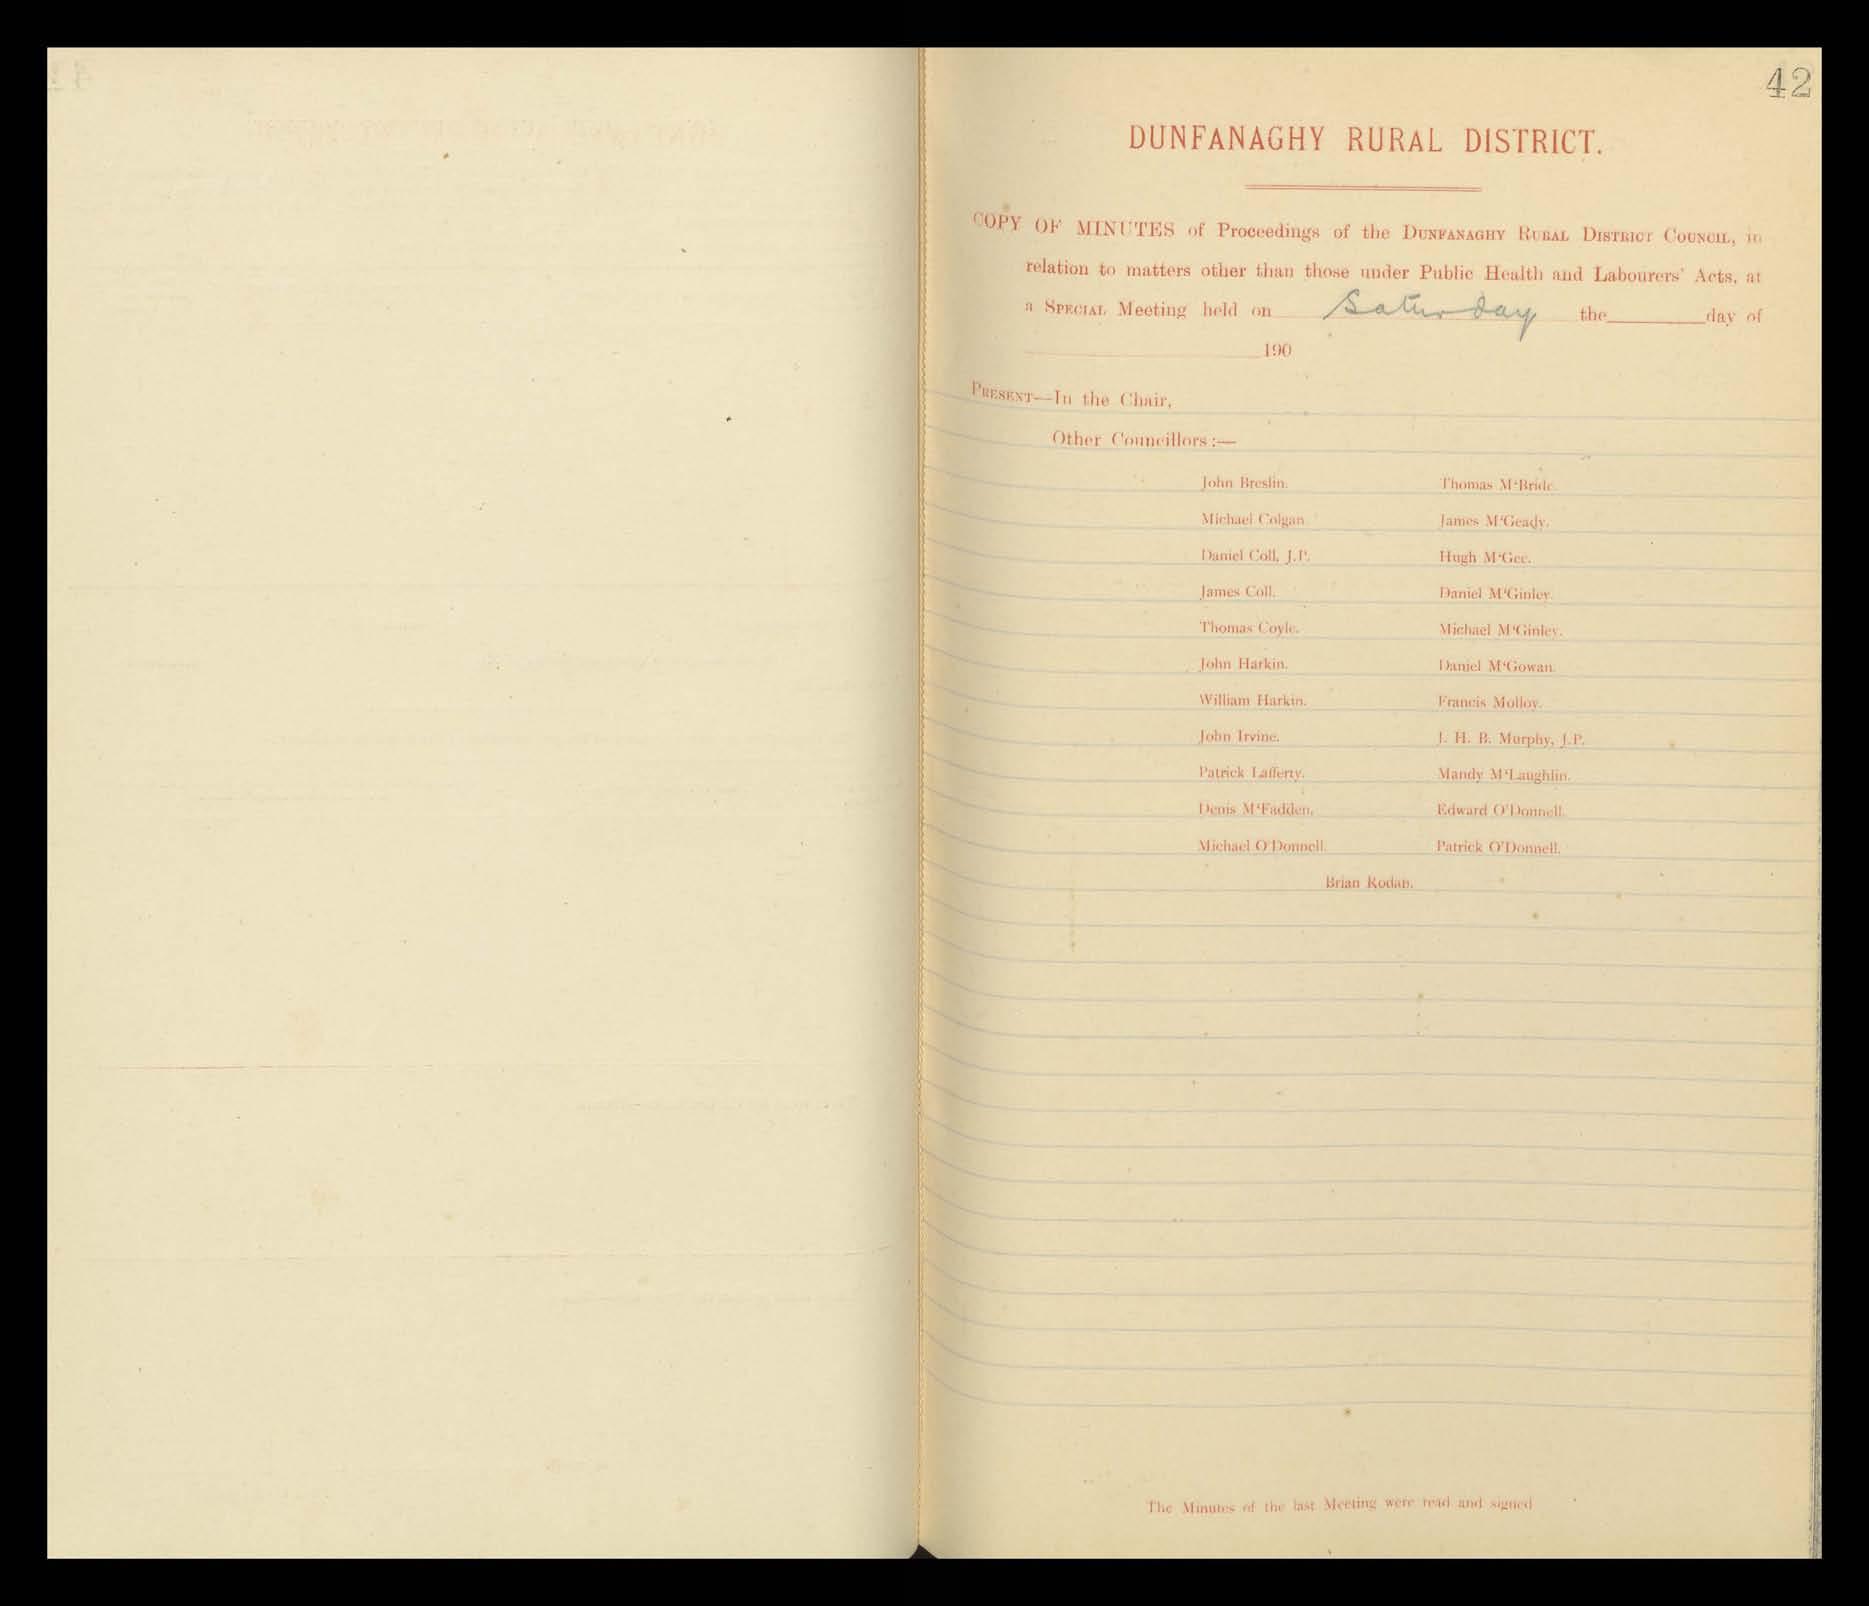 42
DUNFANAGHY RURAL DISTRICT.
COPY OF MINUTES of Proceedings of the DUNFANAGHY RURAL DISTRICT COUNCIL, in
relation to matters other than those under Public Health and Labourers' Acts, at
a SPECIAL Meeting held on Saturday the day of
190
PRESENT—In the Chair,
Other Councillors :—
John Breslin. Thomas M‘Bride.
Michael Colgan. James M‘Geady.
Daniel Coll, J.P. Hugh M‘Gee.
James Coll. Daniel M‘Ginley.
Thomas Coyle. Michael M‘Ginley.
John Harkin. Daniel M‘Gowan.
William Harkin. Francis Molloy.
John Irvine. J. H. B. Murphy, J.P.
Patrick Lafferty. Mandy M‘Laughlin.
Denis M‘Fadden. Edward O'Donnell.
Michael O'Donnell. Patrick O'Donnell.
Brian Rodan.
The Minutes of the last Meeting were read and signed